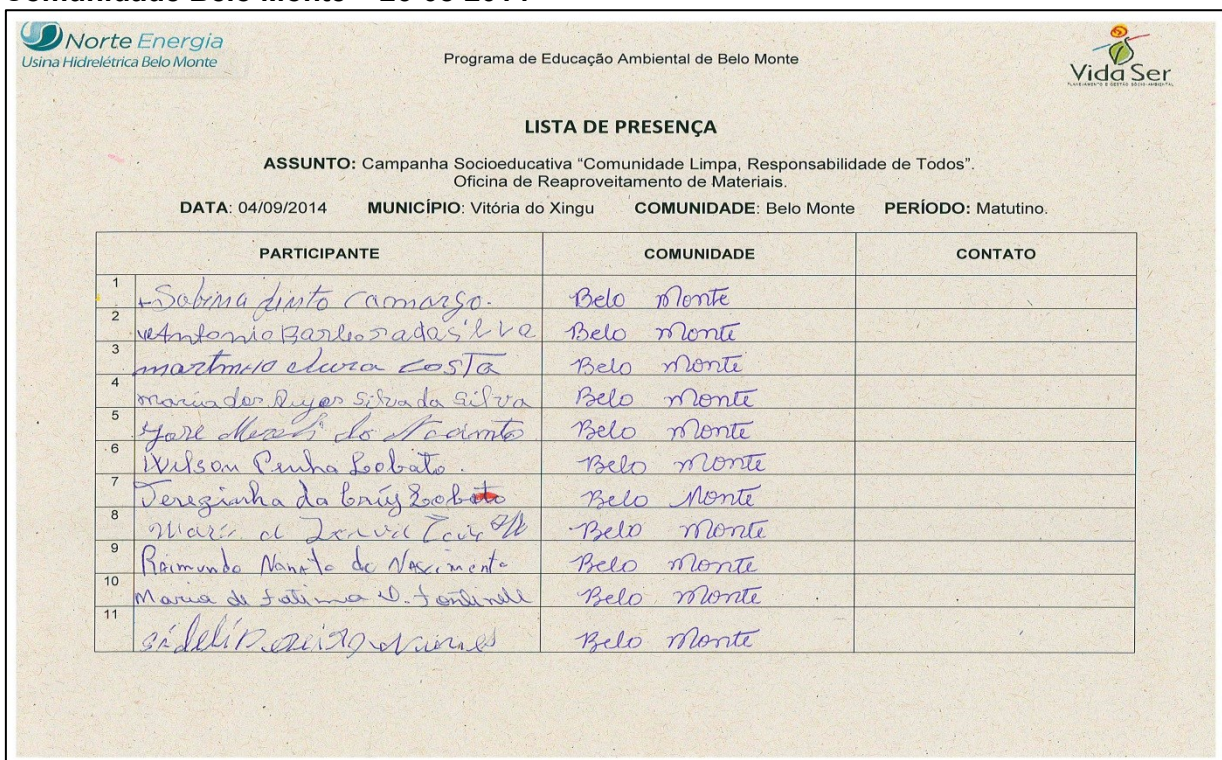 Norte Energia
Usina Hidrelétrica Belo Monte
Programa de Educação Ambiental de Belo Monte
Vida Ser
LISTA DE PRESENÇA
ASSUNTO: Campanha Socioeducativa “Comunidade Limpa, Responsabilidade de Todos”.
Oficina de Reaproveitamento de Materiais.
DATA: 04/09/2014 MUNICÍPIO: Vitória do Xingu COMUNIDADE: Belo Monte PERÍODO: Matutino.
PARTICIPANTE COMUNIDADE CONTATO
1 Sabina Camargo. Belo Monte
2 Antonia Barbosa da Silva Belo Monte
3 Costa Belo Monte
4 Maria dos Silva da Silva Belo Monte
5 do Belo Monte
6 Wilson Penha Lobato. Belo Monte
7 Terezinha da Cruz Lobato Belo Monte
8 Maria Belo Monte
9 Raimundo Nonato do Nascimento Belo Monte
10 Maria de Fatima Belo Monte
11 Belo Monte